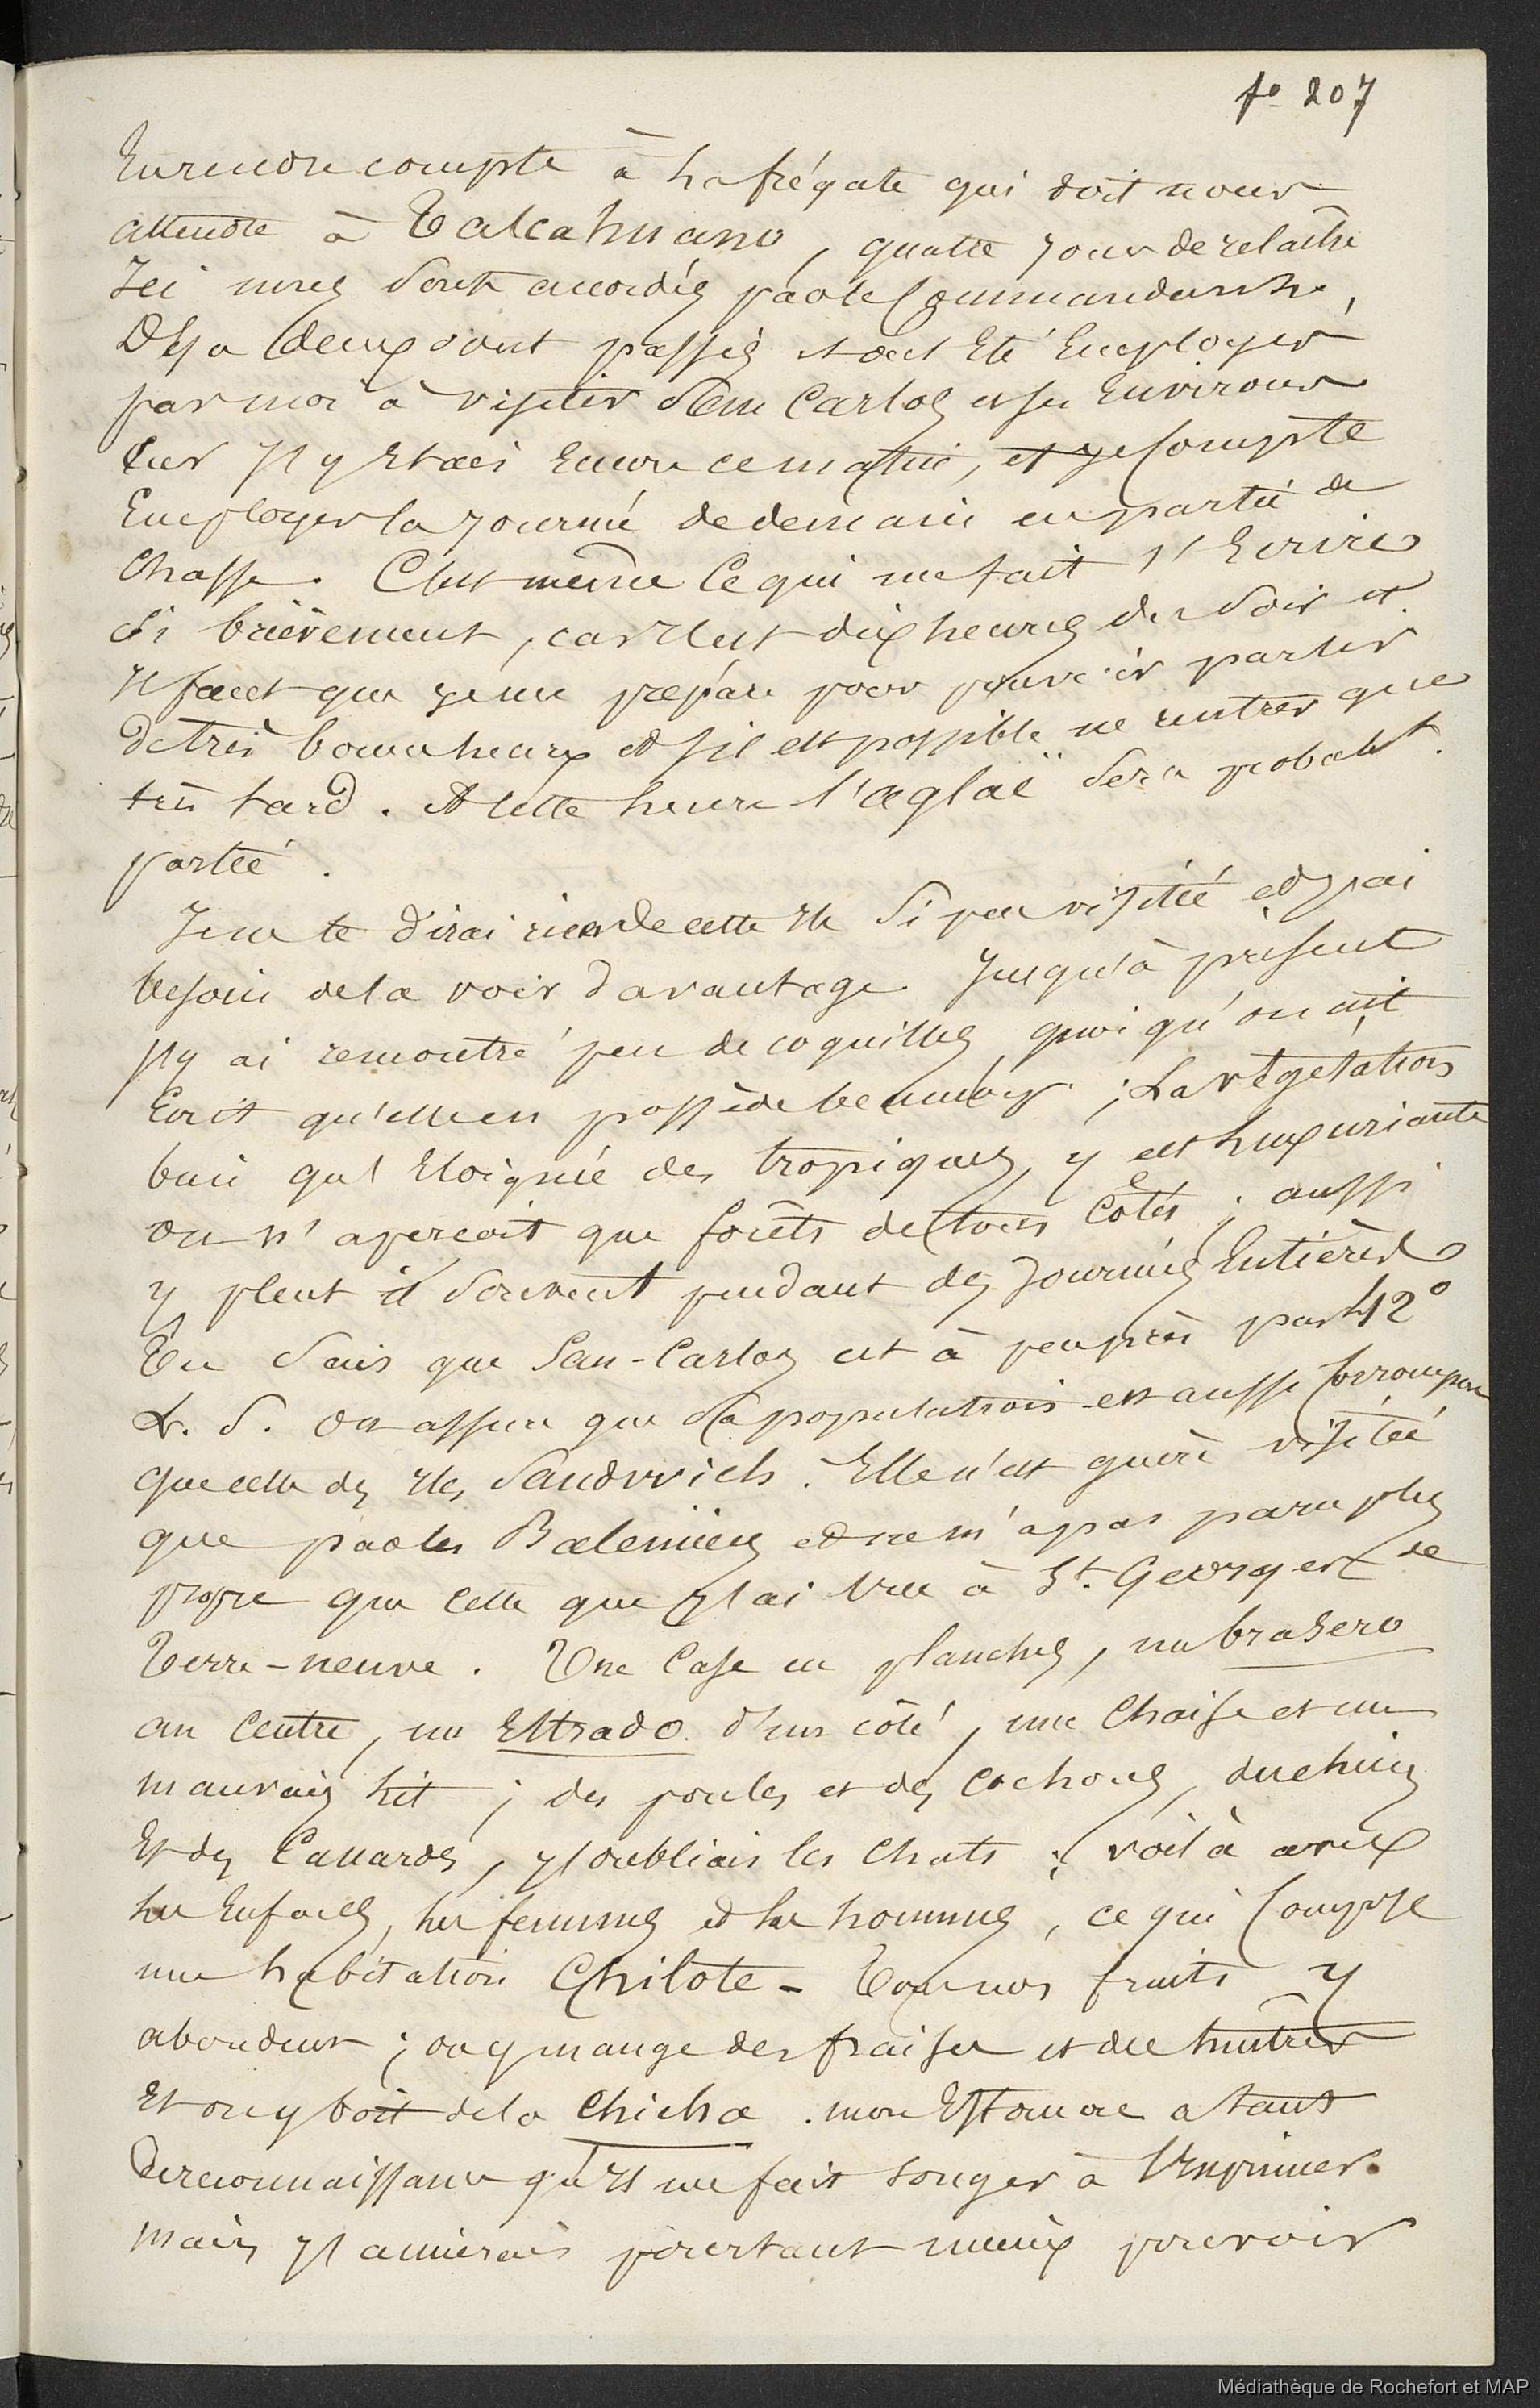 fo 207
En rendre compte à la frégate qui doit nous
attendre à Talcahuano, quatre jours de relache
Ici nous sont accordés par le Commandant,
Déja deux sont passés et ont été Employés
par moi à visiter San Carlos et ses Environs
car j'y étais encore ce matin, et je compte
Employer la journée de demain en partie de
Chasse. C'est même ce qui me fait t'Ecrire
si brièvement, car il est dix heures du soir et
il faut que je me prépare pour pouvoir partir
de très bonne heure et s'il est possible ne rentrer que
très tard. A cette heure l'aglaë sera probablt.
partie.
Je ne te dirai rien de cette Ile si peu visitée et j'ai
besoin de la voir davantage. Jusqu'à présent
j'y ai remontré peu de coquilles, quoi qu'on ait
Ecrit qu'elle en possède beaucoup ; La végétation
bien qu'Eloignée des tropiques, y est luxuriante
on n'aperçoit que forêts de tous Cotés ; aussi
y pleut il souvent pendant des Journées Entières
Tu sais que San-Carlos est à peu près par 42°
L. S. On assure que sa population est aussi corrompue
que celle des Iles Sandwich. Elle n'est guère visitée
que par les Baleiniers et ne m'a pas paru plus
propre que celle que j'ai vue à St. Georges de
Terre-neuve. Une Case en planches, un brasero
au Centre, un Estrado d'un côté, une Chaise et un
mauvais lit ; des poules et des cochons, des chiens
Et des Canards, j'oubliais les Chats ; voilà avec
les Enfans, les femmes et les hommes, ce qui Compose
une habitation Chilote - Tous nos fruits y
abondent ; on y mange des fraises et des huîtres
Et on y boit de la Chicha. mon Estomac a tant
de reconnaissance qu'il me fait songer à l'Exprimer.
mais j'aimerais pourtant mieux pouvoir
Médiathèque de Rochefort et MAP